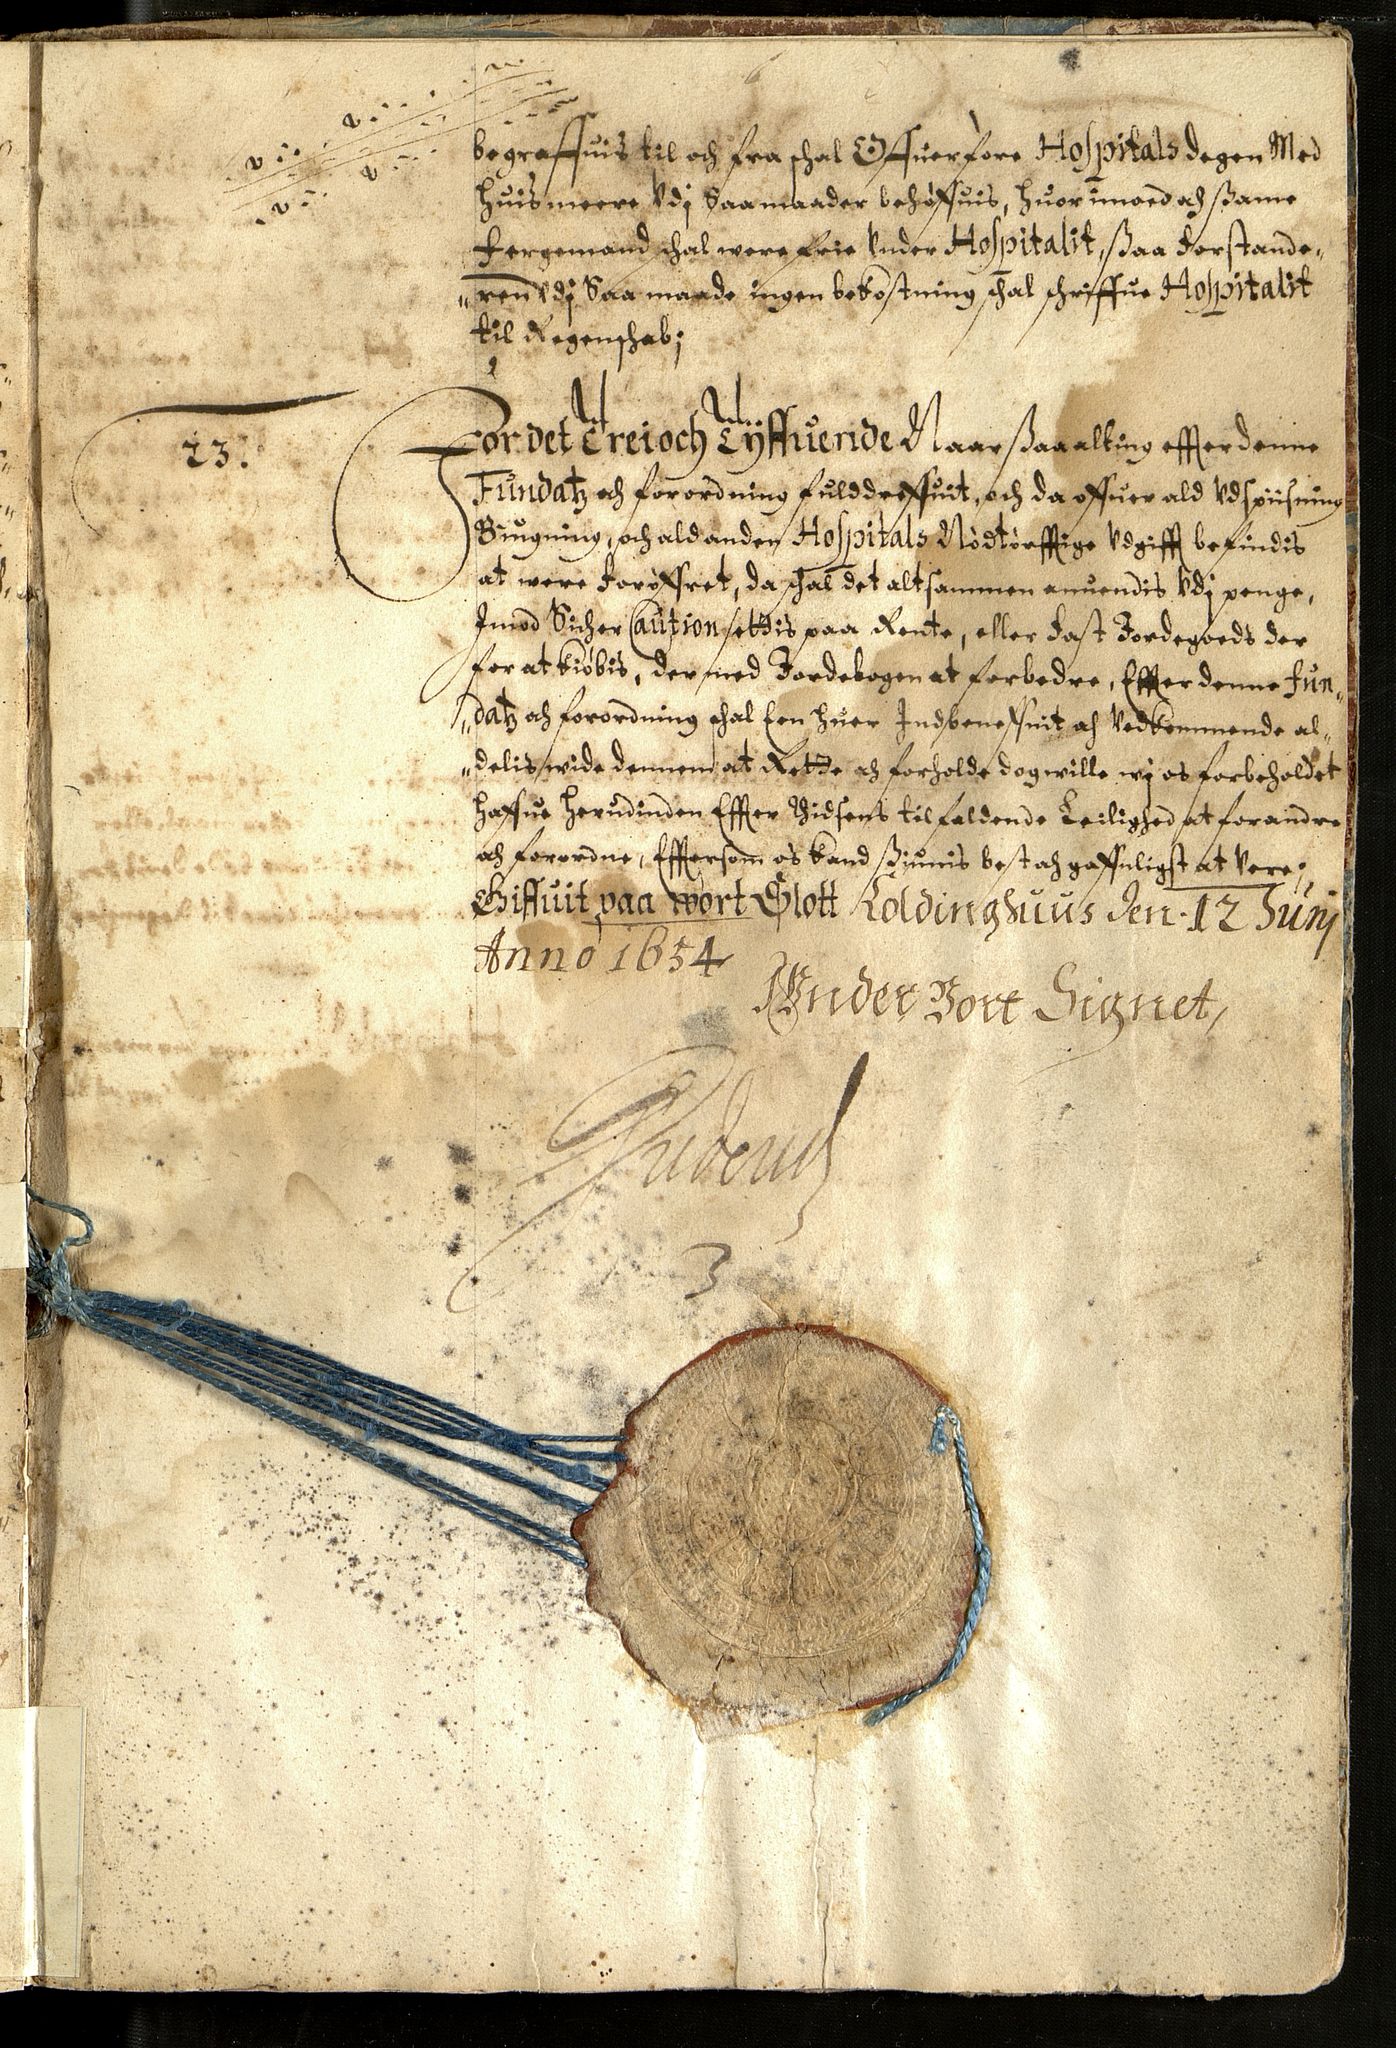 begraffuis til och fra schal Offuerføre Hospitals degen Med
huis meere Vdj Saamaader behøffuis, huorimoed och ßame
fergemand schal were frie Vnder Hospitalit, ßaa forstande„
„ren Vdj Saa maade ingen bekostning schal schriffue Hospitalit
til Regenschab;
23.
For det Trei och Tÿffuende Naar ßaa alting effter denne
Fundatz och forordning fulddreffuit, och da offuer ald Vdspiisning
Biugning, och ald anden Hospitals Nødtørfftige Vdgifft befindis
at were forøffret, da schal det altsammen anuendis Vdj penge,
Imod Sicher Caution settis paa Rente, eller fast Jordegoeds der
for at kiøbis, der med Jordebogen at forbedre, Effter denne Fun„
„datz och forordning schal Een huer Indbeneffnit och Vedkommende al„
„delis wide dennem at Rette och forholde dog wille wj os forbeholdet
haffue herudinden Effter Thidsens tilfaldende Leilighed at forandre
och forordne, Efftersom os kand ßiunis best och gaffnligst at Vere;
Giffuit paa wort Slott Koldinghuus den 12 Junj
Anno 1654
Wnder Vort Signet,
Friderich
3